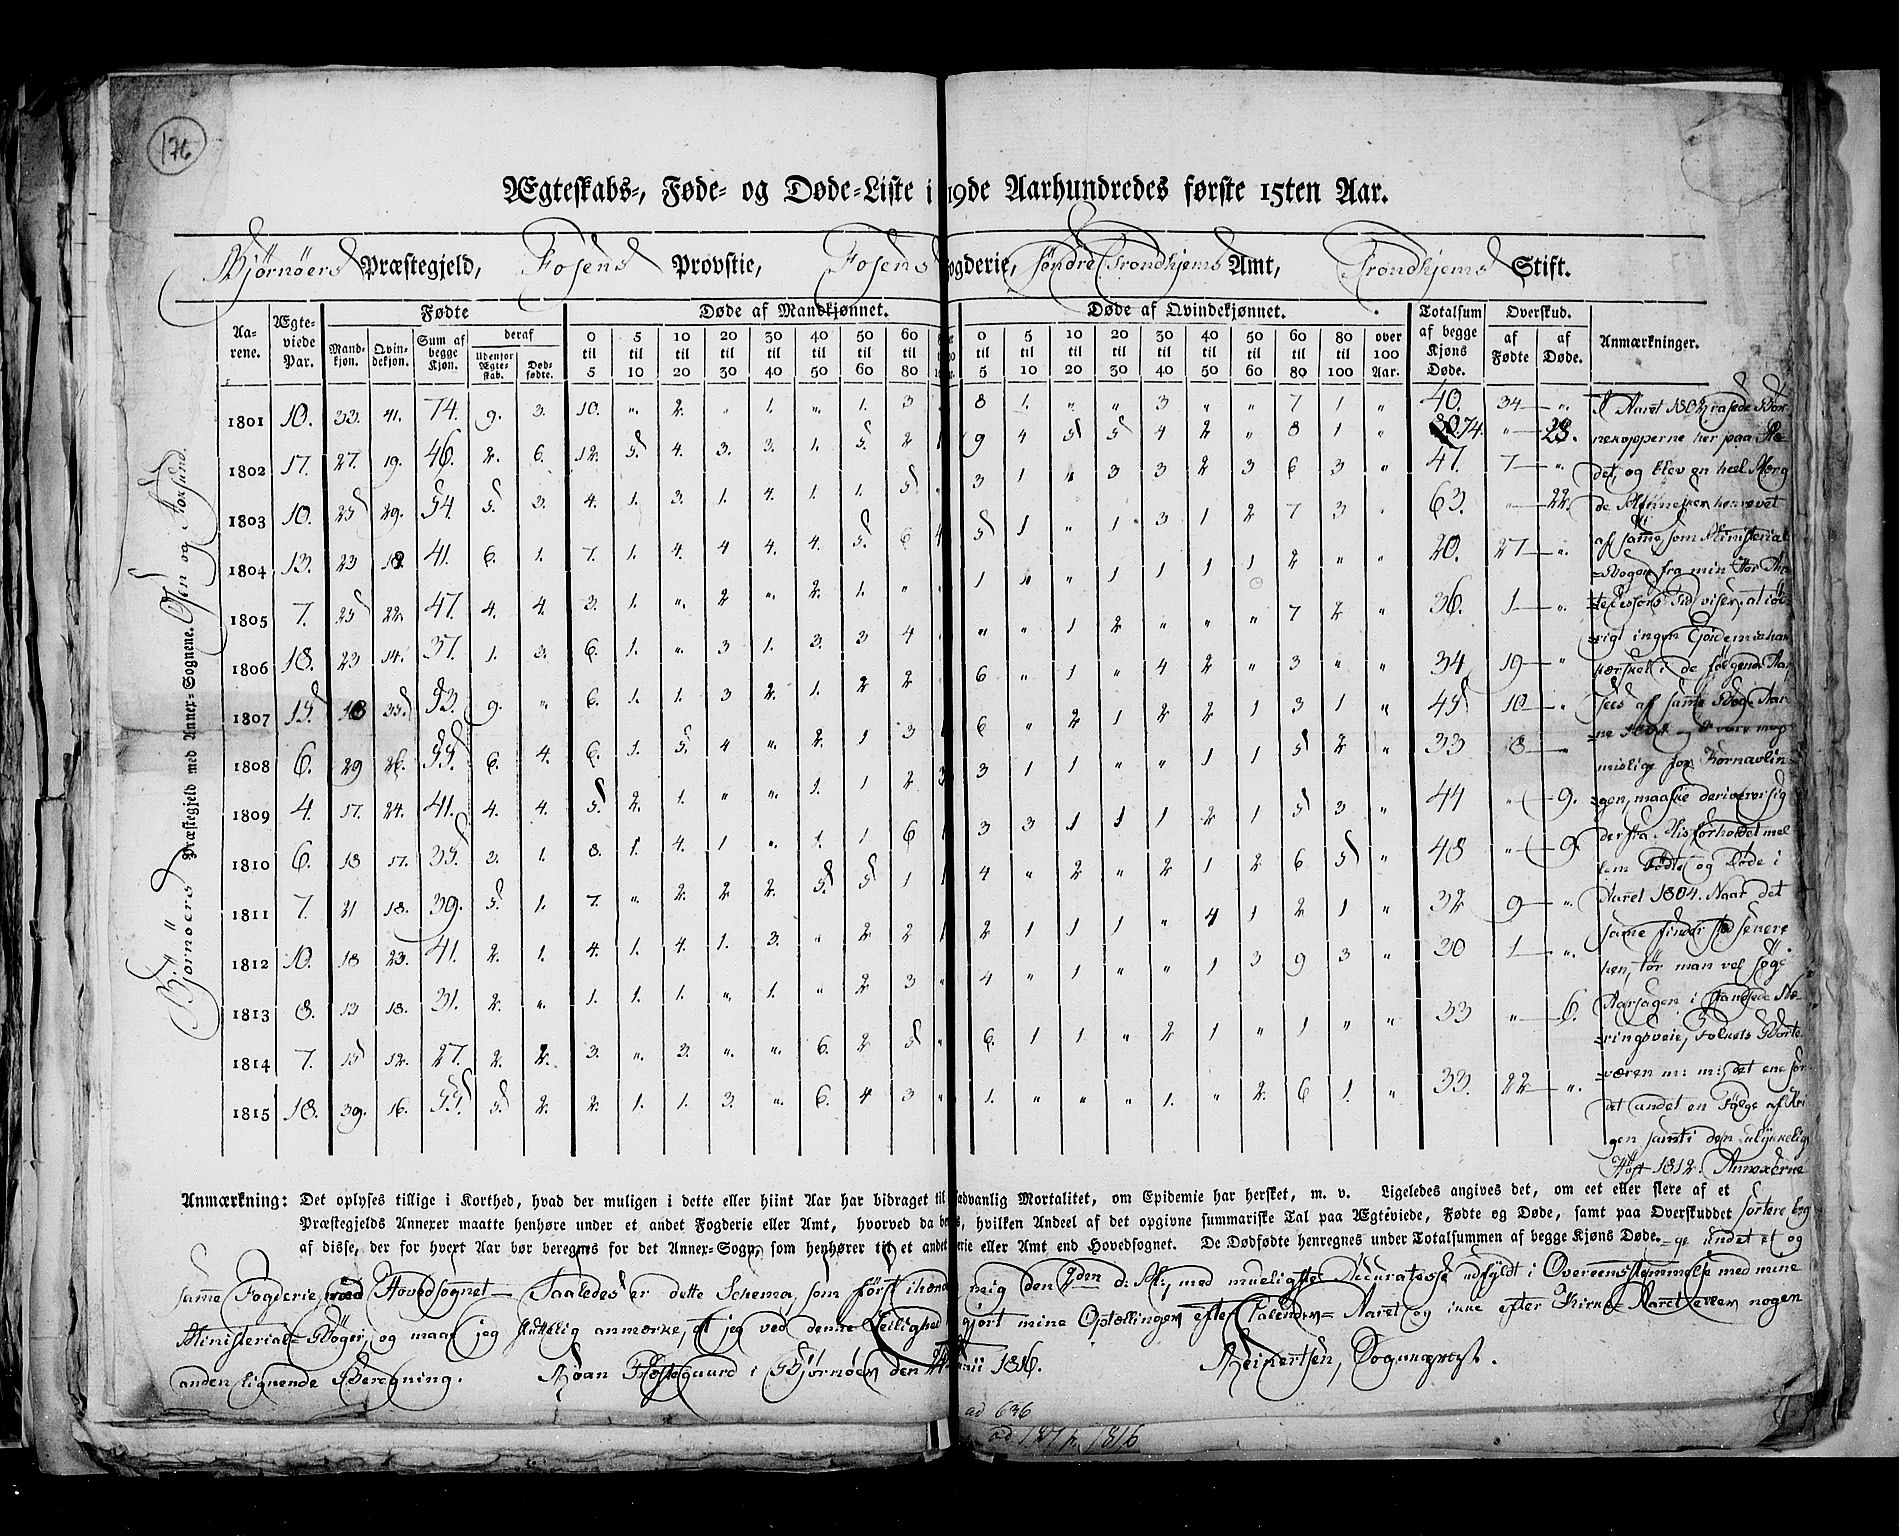 176
Ægteskabs-, Føde- og Døde-Liste i 19de Aarhundredes første 15ten Aar.
Bjørnøers Præstegjeld, Fosens Provstie, Fosens ogderie, søndre Trondhjems Amt, Trondhjems Stift.
Aa-rene. Ægte-viede Par. Fødte Døde af Mandkjønnet. Døde af Qvindekjønnet. Totalsum af begge Kjøns Døde. Overskud. Anmærkninger.
Mand-kjøn. Qvin-dekjøn. Sum af begge Kjøn. deraf Udenfor Ægte-skab. Død-fødte. af Fødte af Døde.
0 til 5 5 til 10 10 til 20 20 til 30 30 til 40 40 til 50 50 til 60 60 til 80 0 til 5 5 til 10 10 til 20 20 til 30 30 til 40 40 til 50 50 til 60 60 til 80 80 til 100 over 100 Aar.
1801 10. 33. 41. 74. 9. 3. 10. „ 2. „ 1. „ 1. 3 8 1. „ „ 3 „ „ 7 1 „ 40. 34 „
1802 17. 27. 19. 46. 2. 6. 12. 5. 4. 3. 3. 1. 5. 2 1 9 4 5 5 4 2 „ 8 1 „ 74. „ 28.
1803 10. 25 29. 54. 5. 3. 4. 1. 3. 1. 4. 1. 1. 5. „ 3 1 „ 3 3 2 3 6 3 „ 47. 7 „
1804 13. 23 18. 41. 6. 1. 7. 1. 4. 4 4. 4. 5. 6 4 5 1 „ 1 3 1 2 7 3 „ 63. „ 22.
1805 7. 25 22. 47. 4. 4. 3. 1. „ 2 „ 2. 1. „ „ 1 „ „ 1 1 1 1 2 „ „ 20. 27 „
1806 18. 23 14. 37. 1. 3. 6. 1. „ 3 1. 3. 3 4. „ „ „ 1 2 „ „ „ 7 2 „ 36. 1 „
1807 15. 18 35. 53. 9. „ 6. 1. 1. 3 2. 1. 2 2 6 „ 1 „ 4 2 „ 3 „ „ 34 19 „
1808 6. 29 26. 55. 6. 4. 6. 1. 5. 4 „ 2. 1 3 1 6 „ 2 1 2 2 1 3 1 „ 45 10 „
1809 4. 17. 24. 41. 4. 4. 5. 2. 1. „ „ 1. 1 2 3 3 1 1 „ „ 1 1 5 2 „ 33 8 „
1810 6. 18 17. 35. 3. 1. 8. 1. 4. 1 „ 1. 1 6 1 3 3 1 1 1 2 1 5 3 „ 44 „ 9.
1811 7. 21 18. 39. 5. 1. 7. „ 2. 2 2. 5. 5 1 1 4 „ 2 „ 2 1 2 6 5 „ 48 „ 9.
1812 10. 18 23. 41. 2. 1. 4. 1. 4. 1. 3. „ 2 2 1 2 1 1 1 „ 4 1 2 1 „ 32 9 „
1813 8. 13 18. 31. 2. „ 1. 1. 1. „ 1. „ 2 3 „ 4 „ 1 „ „ 1 3 9 3 „ 30 1 „
1814 7. 15 12. 27. 2. 2. 3. „ 3. „ „ 6. 2 5 „ 6. 1 1 „ 2 1 „ 1 „ „ 33 „ 6.
1815 18. 39. 16. 55. 5. 2. 2. 1. 1. 3. „ 6. 4 3 „ 1. „ „ „ 1. „ 2. 6 1. „ 33. 22 „
Bjørnøers Præstegjeld med Annex-Sognene. Øsen og Stoksund.
I Aaret 1802 rasede Bør-
nekopperne her paa Ste-
det, og blev en heel Mæng
de Mennesker henrevet
af samme, som Ministerial
-Bogen fra min For An-
tecessors Tid viser, at iøv-
rigt ingen Epidemie har
hersket i de følgende Aar
sees af samme Bog. Aar-
ne 1804 og
mislige for Kornavlin-
gen, maaskee deriver sig
derfra Misforholdet mel
lem Fødte og Døde i
Aaret 1804. Naar det
samme finder sted senere
hen, tør man vel søge
Aarsagen i standsede Næ-
ringsveie, Folkets Borte-
væren m: m:, det ene saa-
det andet en Følge af Kri
gen samt i den ulykkelig
Høst 1812. Annexerne
Anmærkning: Det oplyses tillige i Korthed, hvad der muligen i dette eller hiint Aar har bidraget til sædvanlig Mortalitet, om Epidemie har hersket, m. v. Ligeledes angives det, om eet eller flere af et
Præstegjelds Annexer maatte henhøre under et andet Fogderie eller Amt, hvorved da be s, hvilken Andeel af det opgivne summariske Tal paa Ægteviede, Fødte og Døde, samt paa Overskuddet sortere beg
af disse, der for hvert Aar bør beregnes for det Annex-Sogn, som henhører til et andet erie eller Amt end Hovedsognet. De Dødfødte henregnes under Totalsummen af begge Kjøns Døde. -ge undet et og
samme Fogderie, med Hovedsognet — Saaledes er dette Schema, som først ihænde mig den 9den d: M:, med mueligste Accuratesse udfyldt i Overeensstemmelse med mine
Ministerial-Bøger, og maae jeg sluttelig anmærke, at jeg ved denne Leilighed gjort mine Optællinger efter Calender-Aaret og ikke efter Kirke-Aaret eller nogen
anden lignende Beregning. Roan Præstegaard i Bjørnøer den Maii 1816. Sogneprest.
ad 636
ad 1816